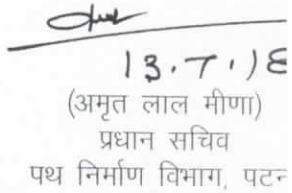 13.7.18
(अमृत लाल मीणा)
प्रधान सचिव
पथ निर्माण विभाग,